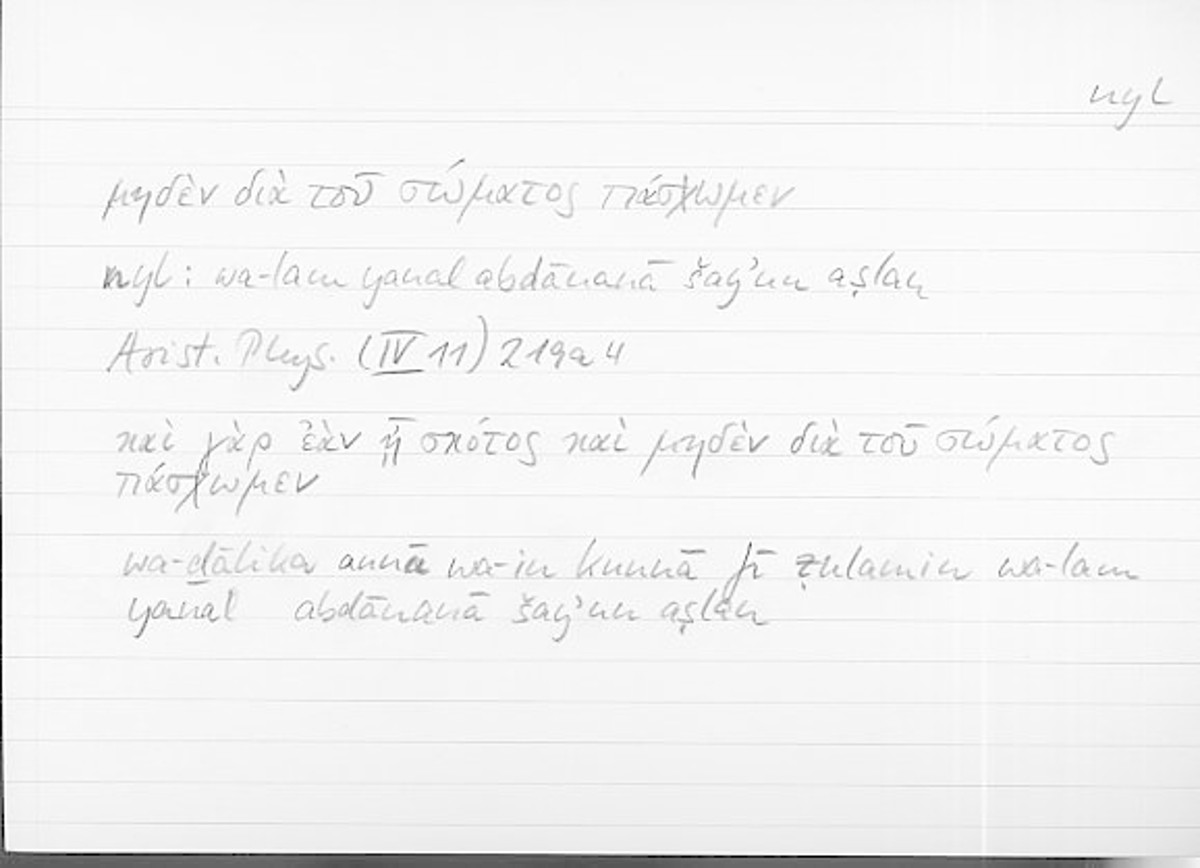 nyl
μηδὲν διὰ τοῦ σώματος πάσχωμεν
nyl: wa-lam yanal abdānanā šay’un aṣlan
Arist. Phys. (IV 11) 219a4
καὶ γὰρ ἐὰν ᾖ σκότος καὶ μηδὲν διὰ τοῦ σώματος
πάσχωμεν
wa-ḏālika annā wa-in kunnā fī ẓulamin wa-lam
yanal abdānanā šay’un aṣlan